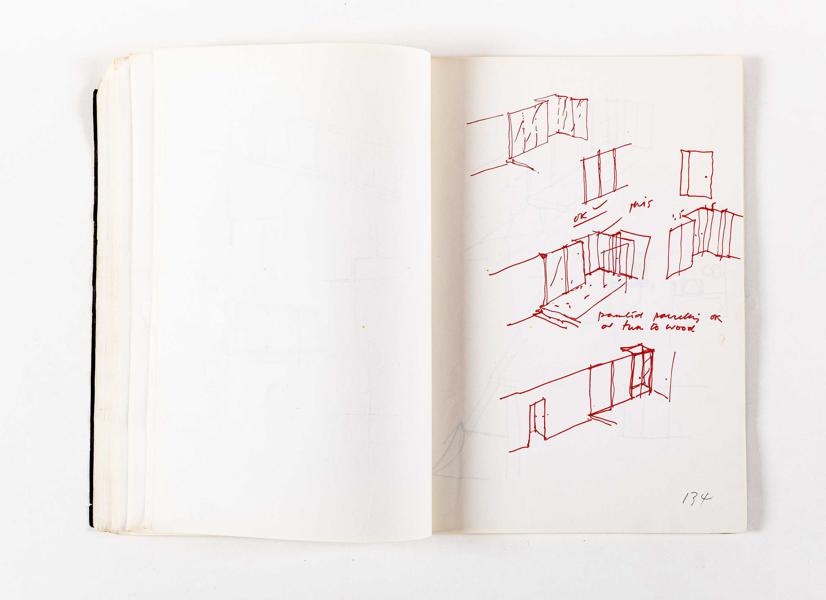 OK
this
1.5 1.5
painted panelling OK
or turn to wood
134